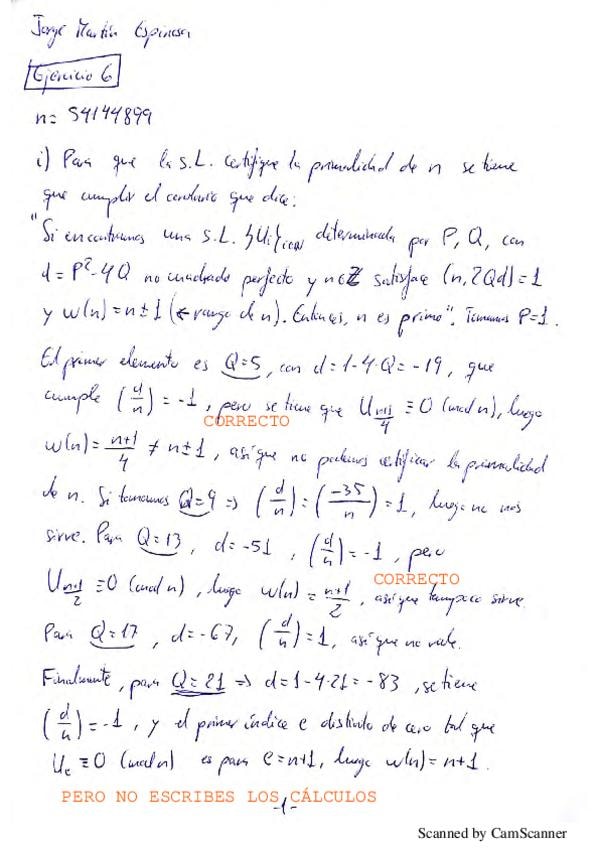 Jorge Martín Espinosa
Ejercicio 6
n = 54144899
i) Para que la s.L. certifique la primalidad de n se tiene
que cumplir el corolario que dice:
"Si encontramos una s.L. {Ui}i∈ℕ determinada por P, Q, con
d = P²-4Q no cuadrado perfecto y n∈ℤ satisface (n, 2Qd) = 1
y w(n) = n ± 1 (← rango de n). Entonces, n es primo". Tomamos P=1.
El primer elemento es Q=5, con d = 1-4·Q = -19, que
cumple (d/n) = -1, pero se tiene que U_{(n+1)/4} ≡ 0 (mod n), luego
CORRECTO
w(n) = (n+1)/4 ≠ n±1, así que no podemos certificar la primalidad
de n. Si tomamos Q=9 => (d/n) = (-35/n) = 1, luego no nos
sirve. Para Q=13, d=-51, (d/n) = -1, pero
CORRECTO
U_{(n+1)/2} ≡ 0 (mod n), luego w(n) = (n+1)/2, así que tampoco sirve.
Para Q=17, d=-67, (d/n) = 1, así que no vale.
Finalmente, para Q=21 => d=1-4·21 = -83, se tiene
(d/n) = -1, y el primer índice e distinto de cero tal que
U_e ≡ 0 (mod n) es para e=n+1, luego w(n) = n+1.
PERO NO ESCRIBES LOS CÁLCULOS
-1-
Scanned by CamScanner